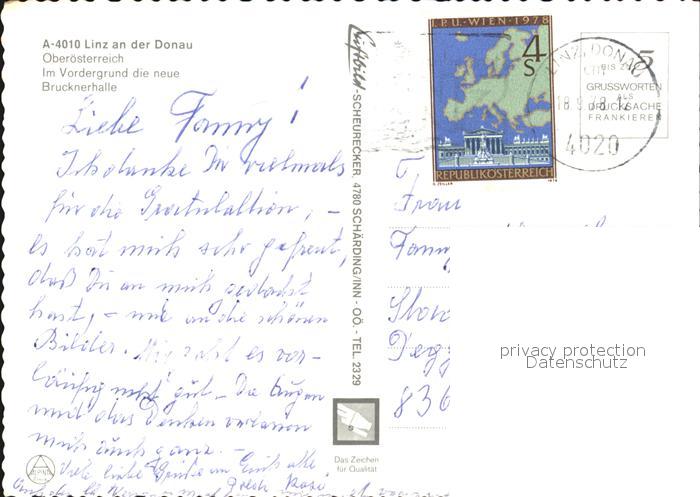 A-4010 Linz an der Donau
Oberösterreich
Im Vordergrund die neue
Brucknerhalle
Liebe Fanny!
Ich danke Dir vielmals
für die Gratulation, –
es hat mich sehr gefreut,
daß Du an mich gedacht
hast, – und an die schönen
Bilder. Mir geht es vor-
läufig nicht gut – Die Augen
und das Denken verlassen
mich auch ganz. –
Viele liebe Grüße an Euch alle
Luftbild-SCHEURECKER, 4780 SCHÄRDING/INN - OÖ. - TEL. 2329
Das Zeichen
für Qualität
ALPINA
I.P.U.-WIEN-1978
4
S
REPUBLIK ÖSTERREICH
1978
LINZ, DONAU
18.9.78
4020
5
BIS ZU
GRUSSWORTEN
ALS
DRUCKSACHE
FRANKIEREN
Frau
Fanny
Pegg
836
privacy protection
Datenschutz